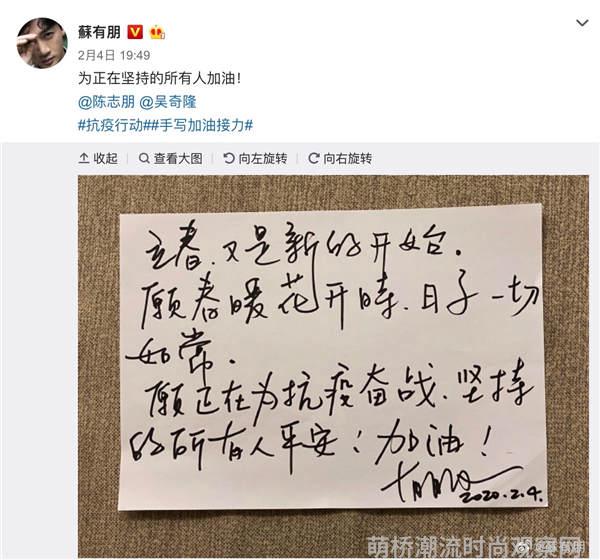 蘇有朋
2月4日 19:49
为正在坚持的所有人加油!
@陈志朋 @吴奇隆
#抗疫行动##手写加油接力#
收起 查看大图 向左旋转 向右旋转
立春.又是新的开始.
愿春暖花开時.日子一切
如常.
愿正在为抗疫奋战.坚持
的所有人平安!加油!
2020.2.4.
@蘇有朋
萌桥潮流时尚观察网